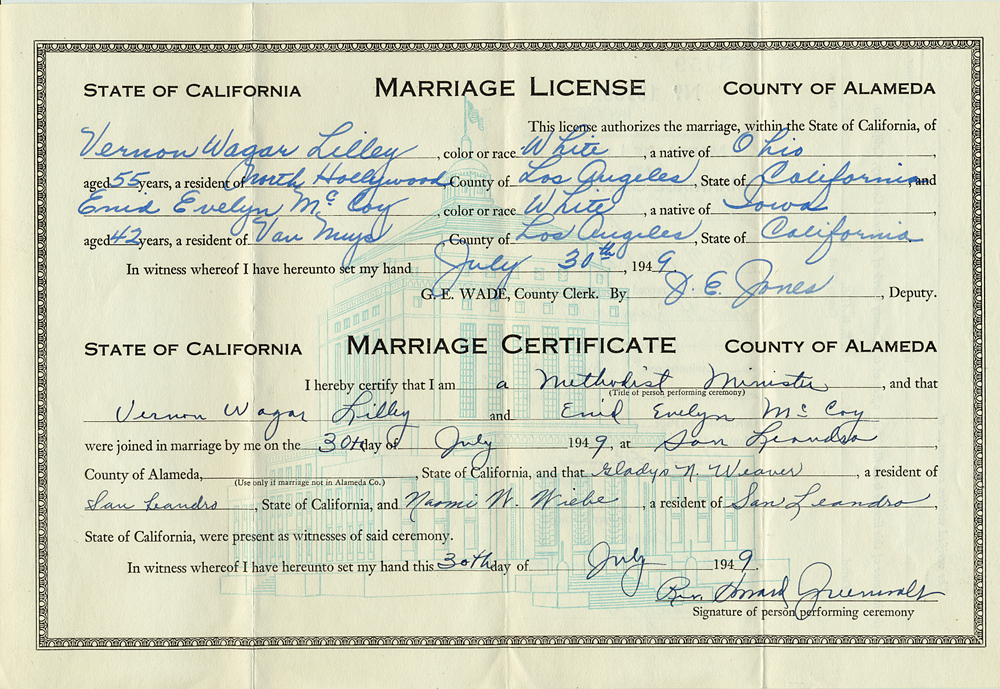 STATE OF CALIFORNIA MARRIAGE LICENSE COUNTY OF ALAMEDA
This license authorizes the marriage, within the State of California, of
Vernon Wagar Lilley, color or race White, a native of Ohio,
aged 55 years, a resident of North Hollywood County of Los Angeles, State of California, and
Enid Evelyn McCoy, color or race White, a native of Iowa,
aged 42 years, a resident of Van Nuys County of Los Angeles, State of California
In witness whereof I have hereunto set my hand July 30th, 1949
G. E. WADE, County Clerk. By D. E. Jones, Deputy.
STATE OF CALIFORNIA MARRIAGE CERTIFICATE COUNTY OF ALAMEDA
I hereby certify that I am a Methodist Minister, and that
(Title of person performing ceremony)
Vernon Wagar Lilley and Enid Evelyn McCoy
were joined in marriage by me on the 30th day of July 1949, at San Leandro,
County of Alameda, , State of California, and that Gladys N. Weaver, a resident of
(Use only if marriage not in Alameda Co.)
San Leandro, State of California, and Naomi W. Wiebe, a resident of San Leandro,
State of California, were present as witnesses of said ceremony.
In witness whereof I have hereunto set my hand this 30th day of July 1949.
Rev.
Signature of person performing ceremony